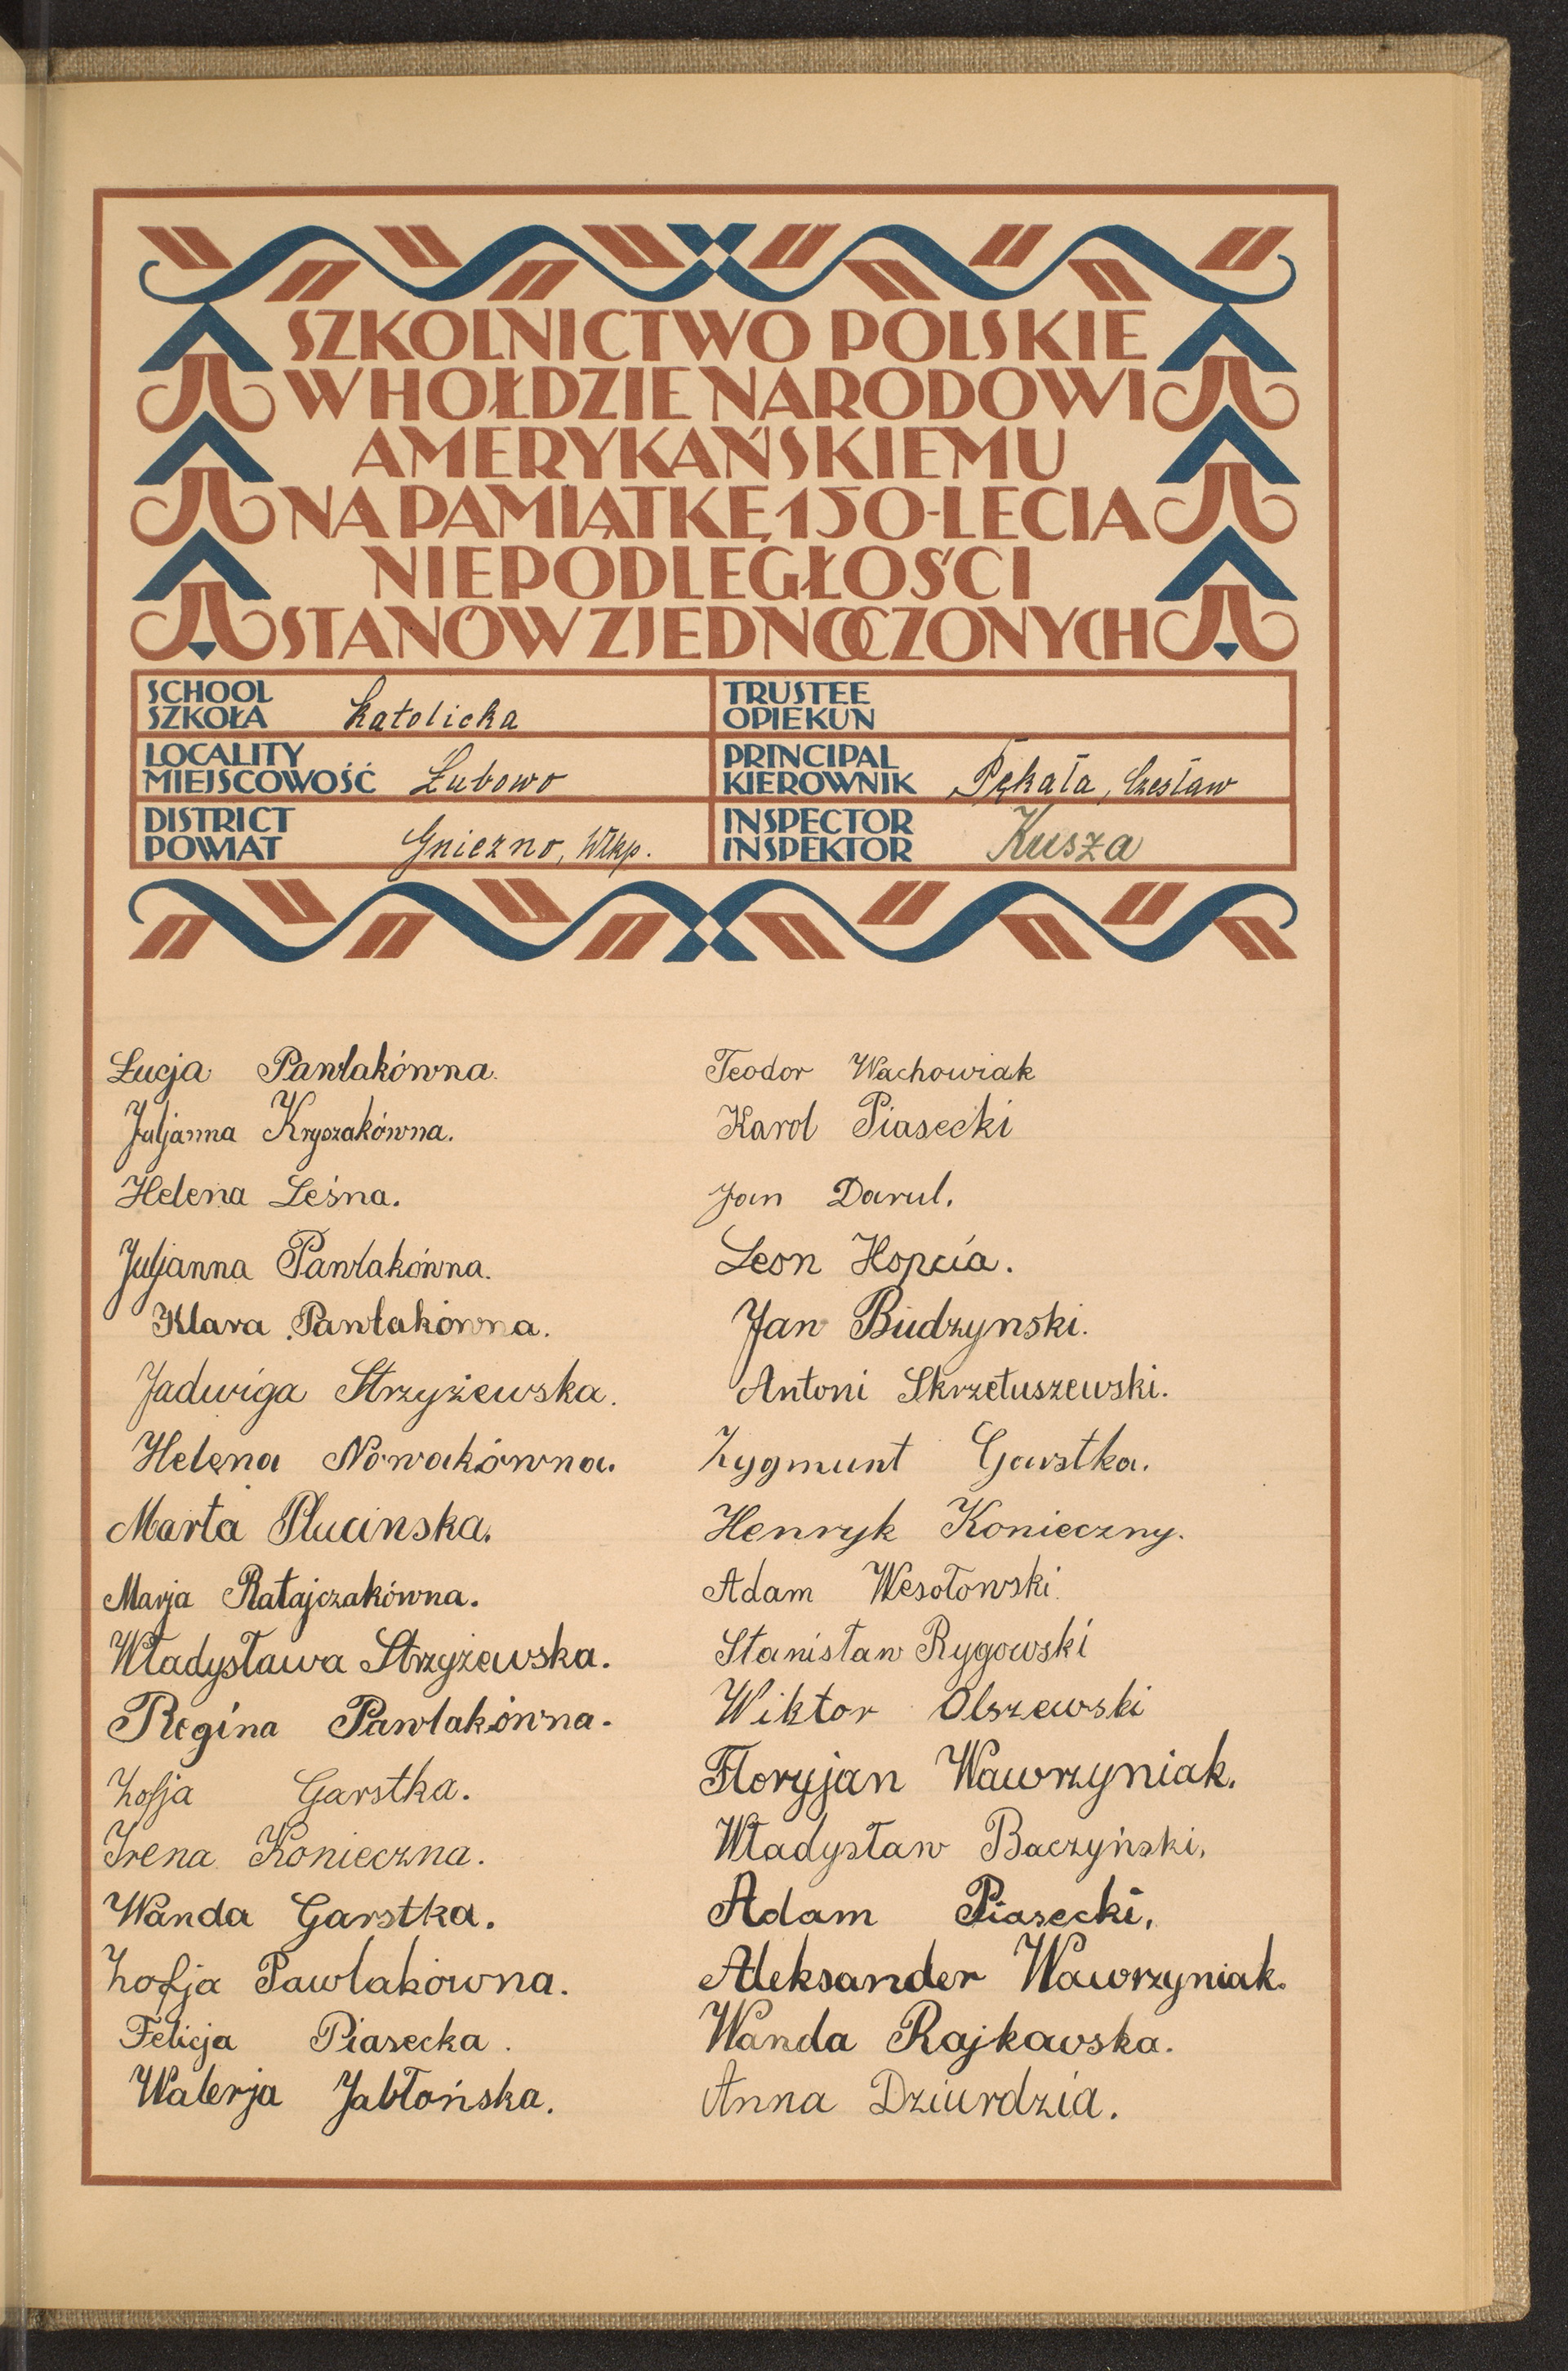 SZKOLNICTWO POLSKIE
W HOŁDZIE NARODOWI
AMERYKAŃSKIEMU
NA PAMIĄTKĘ 150-LECIA
NIEPODLEGŁOŚCI
STANÓW ZJEDNOCZONYCH
SCHOOL
SZKOŁA Katolicka
TRUSTEE
OPIEKUN
LOCALITY
MIEJSCOWOŚĆ Łubowo
PRINCIPAL
KIEROWNIK Pękała, Czesław
DISTRICT
POWIAT Gniezno, Wlkp.
INSPECTOR
INSPEKTOR Kusza
Łucja Pawlakówna.
Juljanna Kryszakówna.
Helena Leśna.
Juljanna Pawlakówna.
Klara Pawlakówna.
Jadwiga Strzyżewska.
Helena Nowakówna.
Marta Plucinska.
Marja Ratajczakówna.
Władysława Strzyżewska.
Regina Pawlakówna.
Zofja Garstka.
Irena Konieczna.
Wanda Garstka.
Zofja Pawlakówna.
Felicja Piasecka.
Walerja Jabłońska.
Teodor Wachowiak
Karol Piasecki
Jan Darul.
Leon Kopcia.
Jan Budzynski.
Antoni Skrzetuszewski.
Zygmunt Garstka.
Henryk Konieczny.
Adam Wesołowski.
Stanisław Rygowski
Wiktor Olszewski
Floryjan Wawrzyniak.
Władysław Baczyński,
Adam Piasecki,
Aleksander Wawrzyniak.
Wanda Rajkawska.
Anna Dziurdzia.